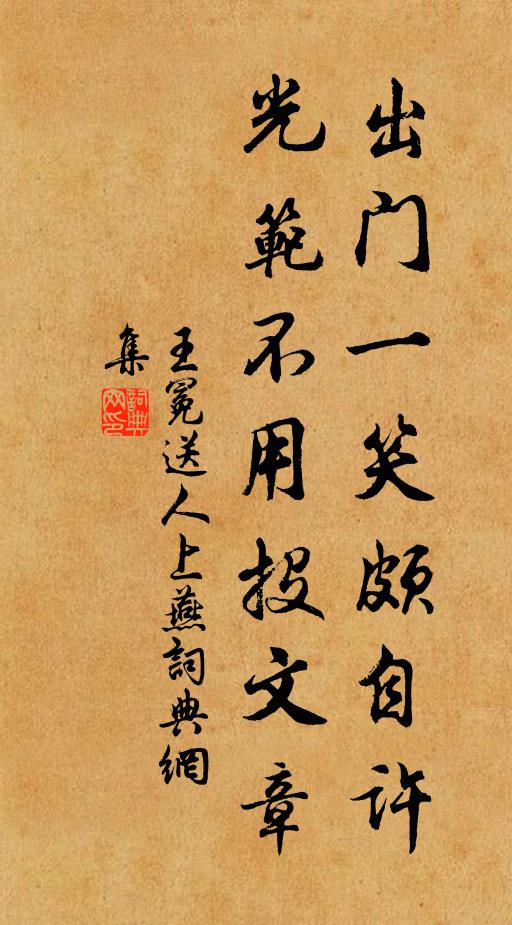 出门一笑颇自许
光範不用投文章
王冕送人上燕詞典網
集
詞典网印